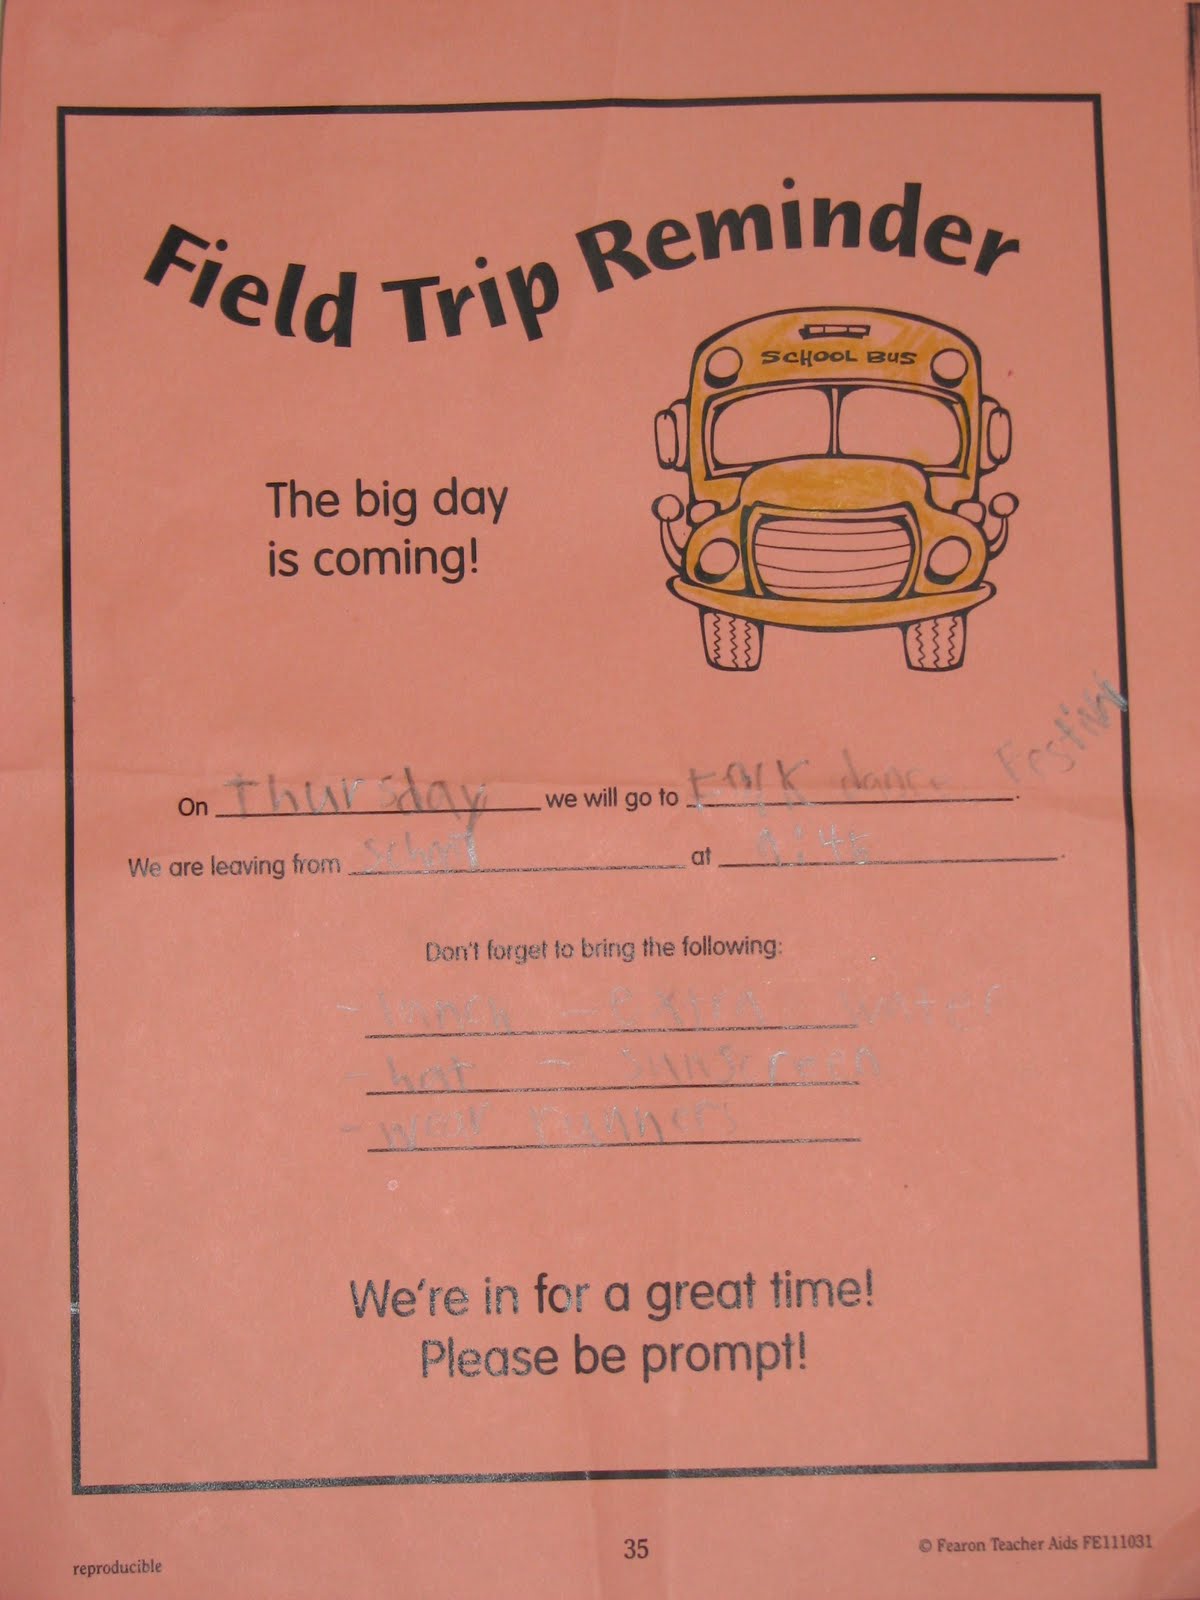 Field Trip Reminder
SCHOOL BUS
The big day
is coming!
On Thursday we will go to Folk dance Festival.
We are leaving from school at 9:45.
Don't forget to bring the following:
- lunch - extra water
- hat - sunscreen
- wear runners
We're in for a great time!
Please be prompt!
reproducible
35
© Fearon Teacher Aids FE111031